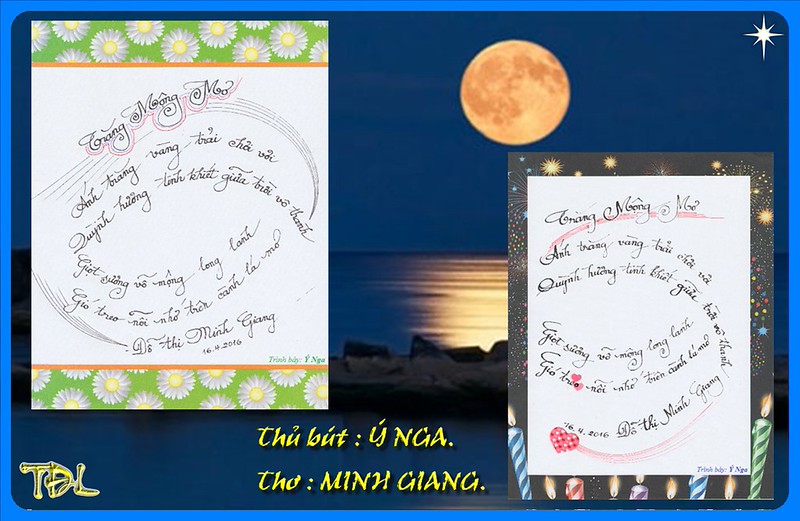 Trăng Mộng Mơ
Ánh trăng vàng trải chơi vơi
Quỳnh hương tinh khiết giữa trời vô thanh
Giọt sương vỡ mộng long lanh
Gió treo nỗi nhớ trên cành lá mơ
Đỗ thị Minh Giang
16.4.2016
Trình bày: Ý Nga
Trăng Mộng Mơ
Ánh trăng vàng trải chơi vơi
Quỳnh hương tinh khiết giữa trời vô thanh
Giọt sương vỡ mộng long lanh
Gió treo nỗi nhớ trên cành lá mơ
16.4.2016 Đỗ thị Minh Giang
Trình bày: Ý Nga
Thủ bút : Ý NGA.
Thơ : MINH GIANG.
TĐL